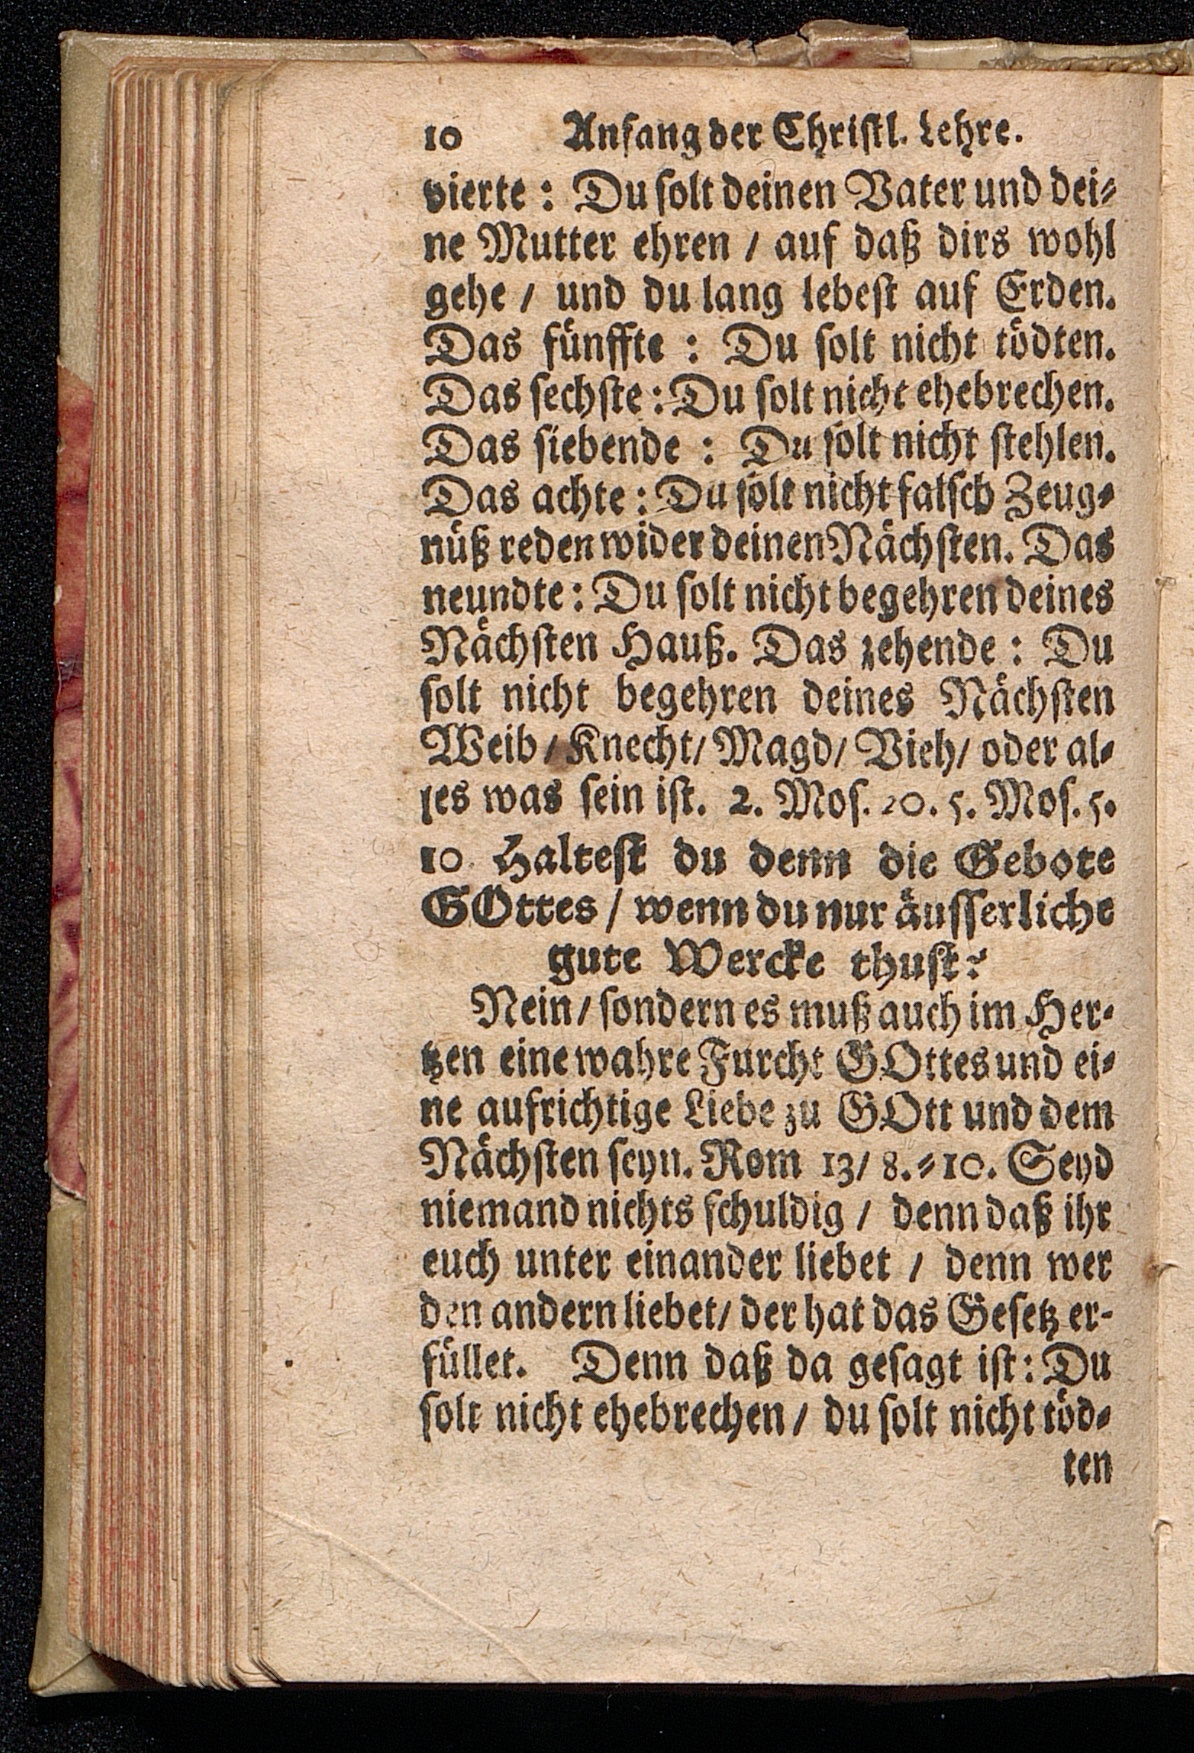 10 Anfang der Christl. Lehre.
vierte : Du solt deinen Vater und dei-
ne Mutter ehren / auf daß dirs wohl
gehe / und du lang lebest auf Erden.
Das fünffte : Du solt nicht tödten.
Das sechste : Du solt nicht ehebrechen.
Das siebende : Du solt nicht stehlen.
Das achte : Du solt nicht falsch Zeug-
nüß reden wider deinen Nächsten. Das
neundte : Du solt nicht begehren deines
Nächsten Hauß. Das zehende : Du
solt nicht begehren deines Nächsten
Weib / Knecht / Magd / Vieh / oder al-
les was sein ist. 2. Mos. 20. 5. Mos. 5.
10 Haltest du denn die Gebote
GOttes / wenn du nur äusserliche
gute Wercke thust?
Nein / sondern es muß auch im Her-
tzen eine wahre Furcht GOttes und ei-
ne aufrichtige Liebe zu GOtt und dem
Nächsten seyn. Rom 13/ 8.-10. Seyd
niemand nichts schuldig / denn daß ihr
euch unter einander liebet / denn wer
den andern liebet / der hat das Gesetz er-
füllet. Denn daß da gesagt ist : Du
solt nicht ehebrechen / du solt nicht töd-
ten